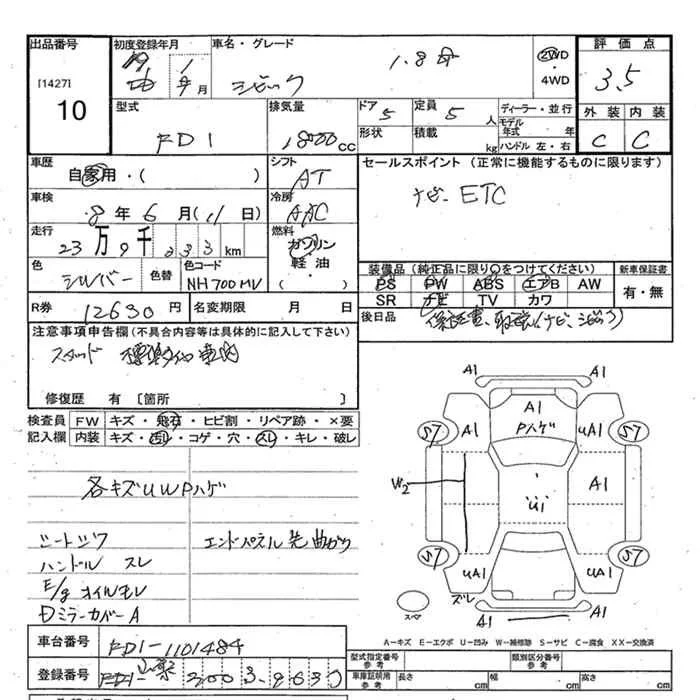 出品番号
[1427]
10
初度登録年月
19 1
年 月
車名・グレード
シビック
1.8
2WD
・
4WD
評価点
3.5
外装 内装
C C
型式
FD1
排気量
1800 CC
ドア 5
形状
定員 5 人
積載 kg
ディーラー・並行
モデル
年式 年
ハンドル 左・右
車歴
自家用・( )
シフト
AT
セールスポイント (正常に機能するものに限ります)
ナビ、ETC
車検
8年 6月(11日)
冷房
AAC
走行
23万9千233km
燃料
ガソリン
軽油
・( )
色
シルバー
色替
色コード
NH700MV
装備品(純正品に限り○をつけてください)
PS PW ABS エアB AW
SR ナビ TV カワ
新車保証書
有・無
R券
12630円
名変期限 月 日
後日品
注意事項申告欄(不具合内容等は具体的に記入して下さい)
修復歴 有 [箇所 ]
検査員
記入欄
FW キズ・飛石・ヒビ割・リペア跡・×要
内装 キズ・汚レ・コゲ・穴・スレ・キレ・破レ
各キズUWPハゲ
シートシワ
ハンドル スレ
E/gオイルモレ
Dミラーカバー A
エンドパネル先曲がり
A1 A1
A1
Pハゲ
S7 A1 UA1 S7
W2
U1
A1
S7 UA1 UA1 S7
ズレ
A1 A1
スペア
A-キズ E-エクボ U-凹み W-補修跡 S-サビ C-腐食 XX-交換済
車台番号
FD1-1101484
登録番号
型式指定番号
参考
類別区分番号
参考
車庫証明用
参考
長さ cm
幅 cm
高さ cm